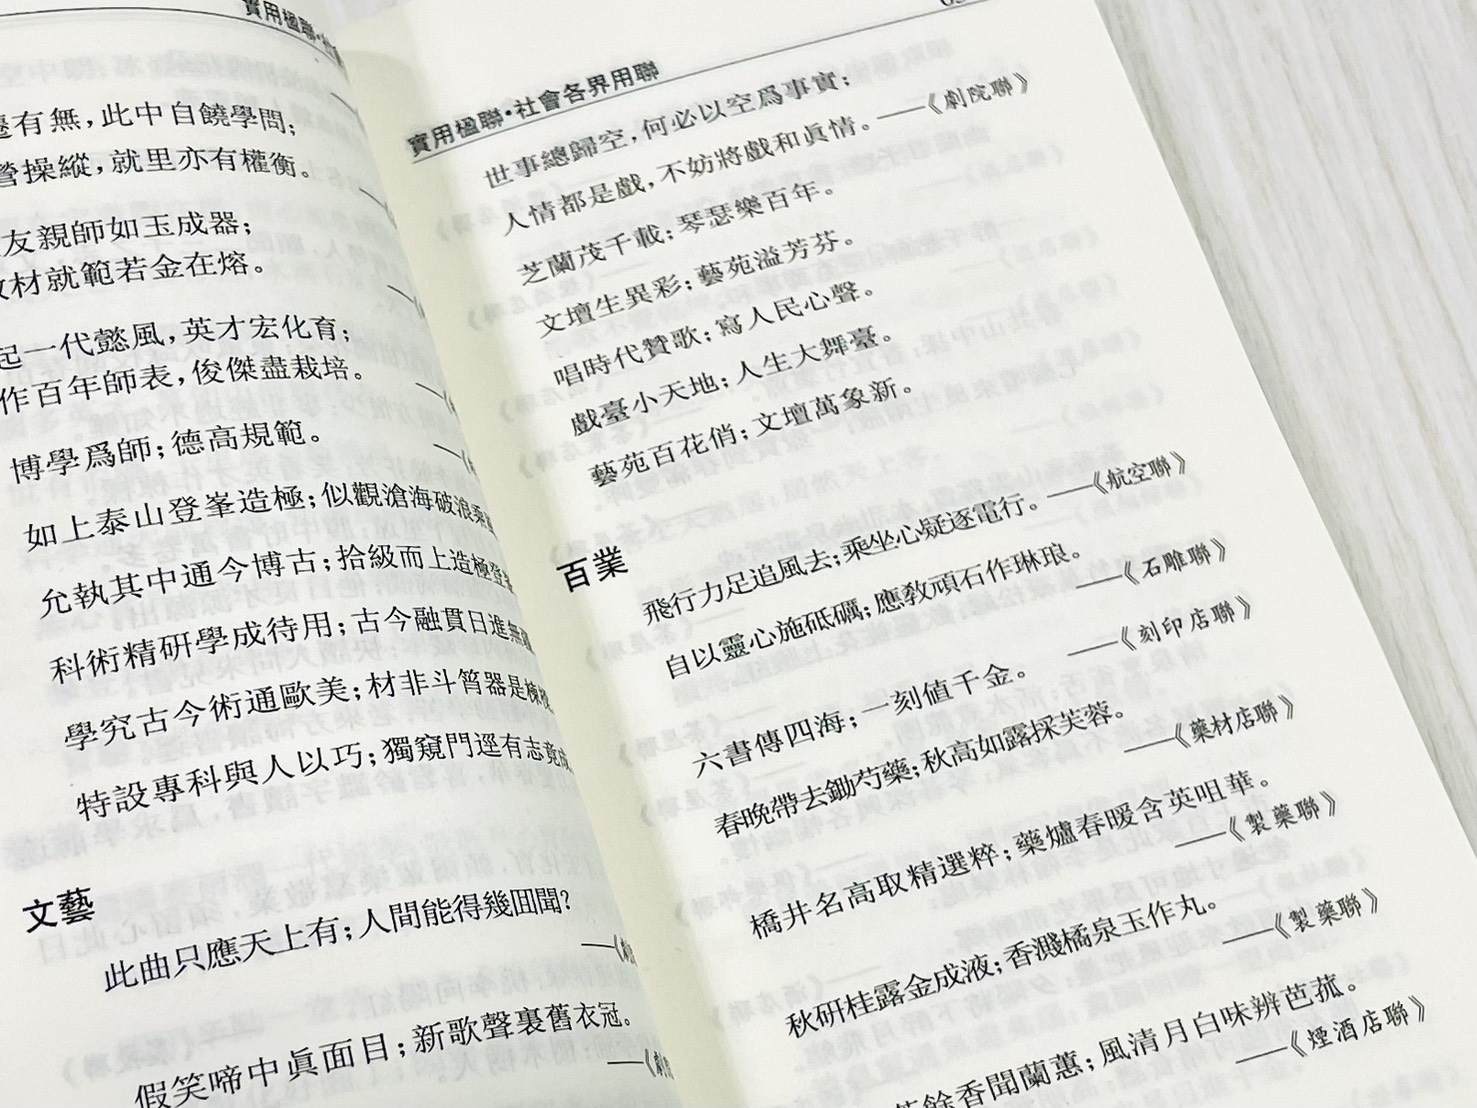 實用楹聯·社
有無，此中自饒學問；
操縱，就里亦有權衡。
友親師如玉成器；
材就範若金在熔。
起一代懿風，英才宏化育；
作百年師表，俊傑盡栽培。
博學爲師；德高規範。
如上泰山登峯造極；似觀滄海破浪乘
允執其中通今博古；拾級而上造極登
科術精研學成待用；古今融貫日進無
學究古今術通歐美；材非斗筲器是棟
特設專科與人以巧；獨窺門逕有志竟成
文藝
此曲只應天上有；人間能得幾回聞？
——《劇
假笑啼中眞面目；新歌聲裏舊衣冠。
——《劇
實用楹聯·社會各界用聯
世事總歸空，何必以空爲事實；
人情都是戲，不妨將戲和眞情。——《劇院聯》
芝蘭茂千載；琴瑟樂百年。
文壇生異彩；藝苑溢芳芬。
唱時代贊歌；寫人民心聲。
戲臺小天地；人生大舞臺。
藝苑百花俏；文壇萬象新。
百業
飛行力足追風去；乘坐心疑逐電行。——《航空聯》
自以靈心施砥礪；應敎頑石作琳琅。
——《石雕聯》
六書傳四海；一刻値千金。
——《刻印店聯》
春晚帶去鋤芍藥；秋高如露採芙蓉。
——《藥材店聯》
橋井名高取精選粹；藥爐春暖含英咀華。
——《製藥聯》
秋研桂露金成液；香濺橘泉玉作丸。
——《製藥聯》
餘香聞蘭蕙；風清月白味辨芭菰。
——《煙酒店聯》